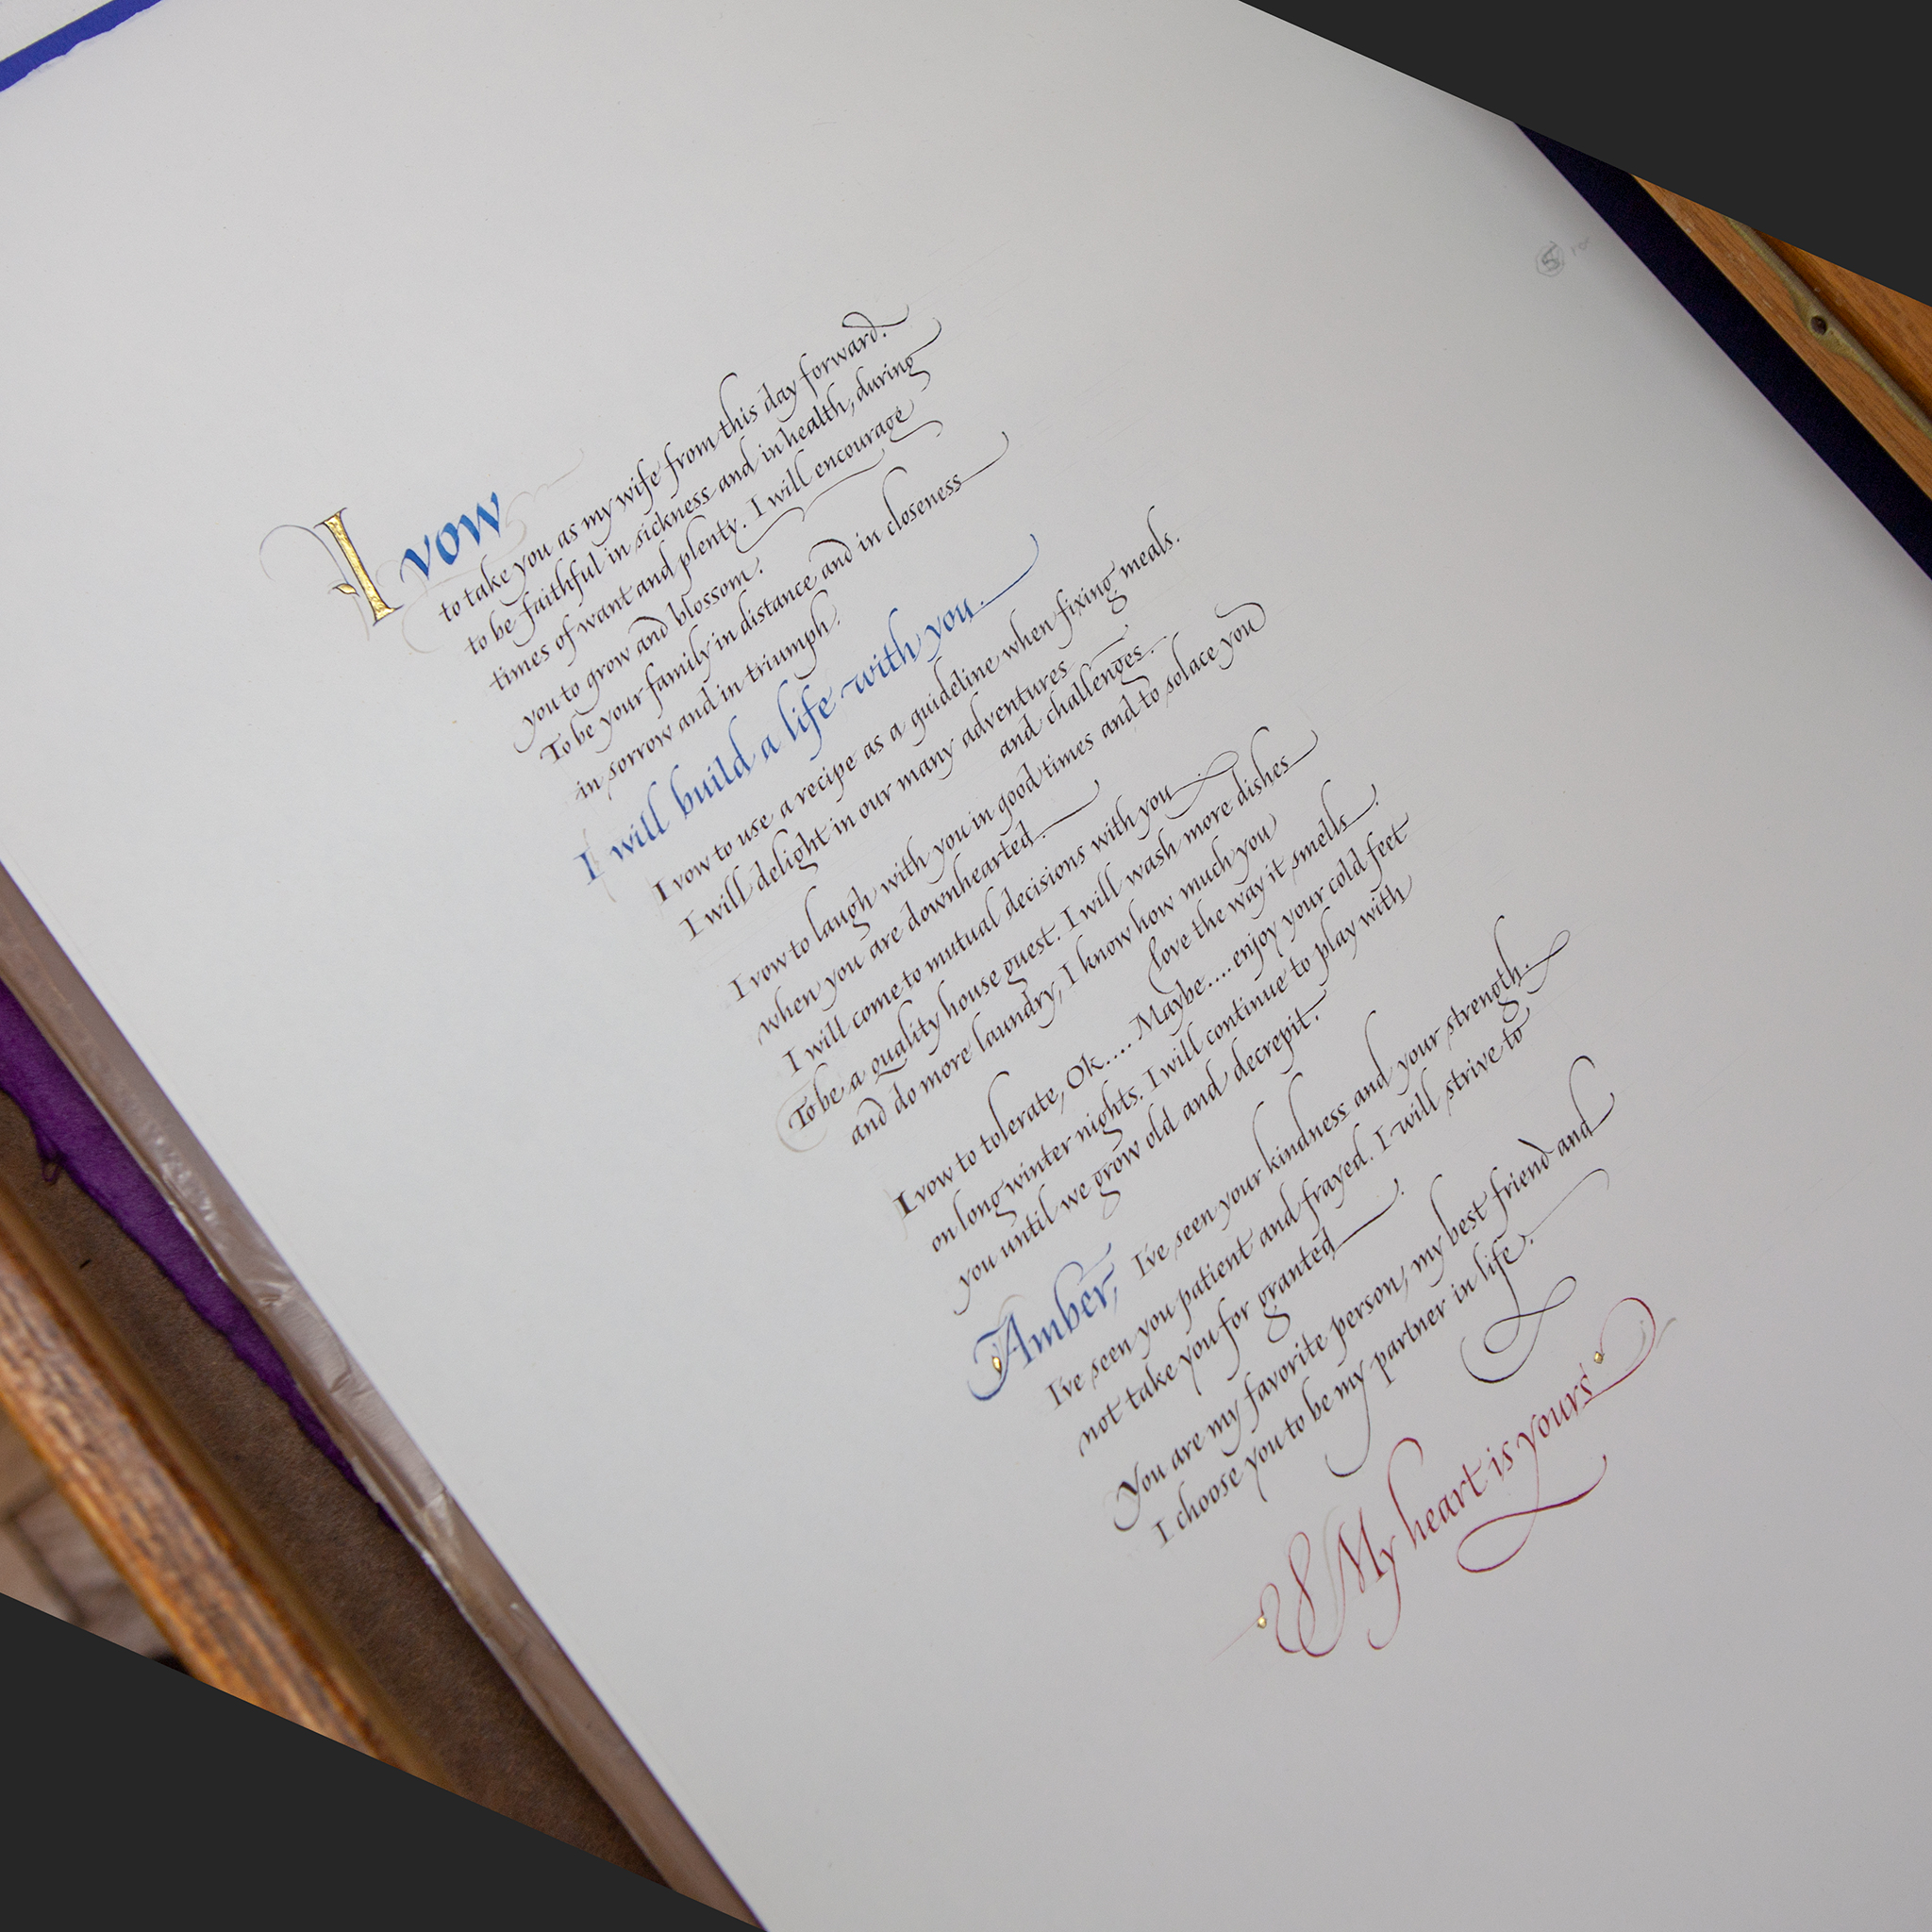 I vow
to take you as my wife from this day forward.
to be faithful in sickness and in health, during
times of want and plenty. I will encourage
you to grow and blossom.
To be your family in distance and in closeness
in sorrow and in triumph.
I will build a life with you.
I vow to use a recipe as a guideline when fixing meals.
I will delight in our many adventures
and challenges.
I vow to laugh with you in good times and to solace you
when you are downhearted.
I will come to mutual decisions with you
To be a quality house guest. I will wash more dishes
and do more laundry, I know how much you
love the way it smells.
I vow to tolerate, Ok..... Maybe.... enjoy your cold feet
on long winter nights. I will continue to play with
you until we grow old and decrepit.
Amber, I've seen your kindness and your strength.
I've seen you patient and frayed. I will strive to
not take you for granted.
You are my favorite person, my best friend and
I choose you to be my partner in life.
My heart is yours
5